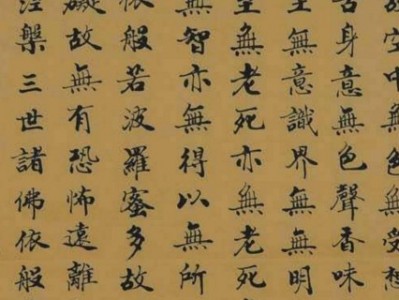 故空中無色無受想
舌身意無色聲香味
至無意識界無無明
至無老死亦無老死
無智亦無得以無所
依般若波羅蜜多故
礙故無有恐怖遠離
涅槃三世諸佛依般